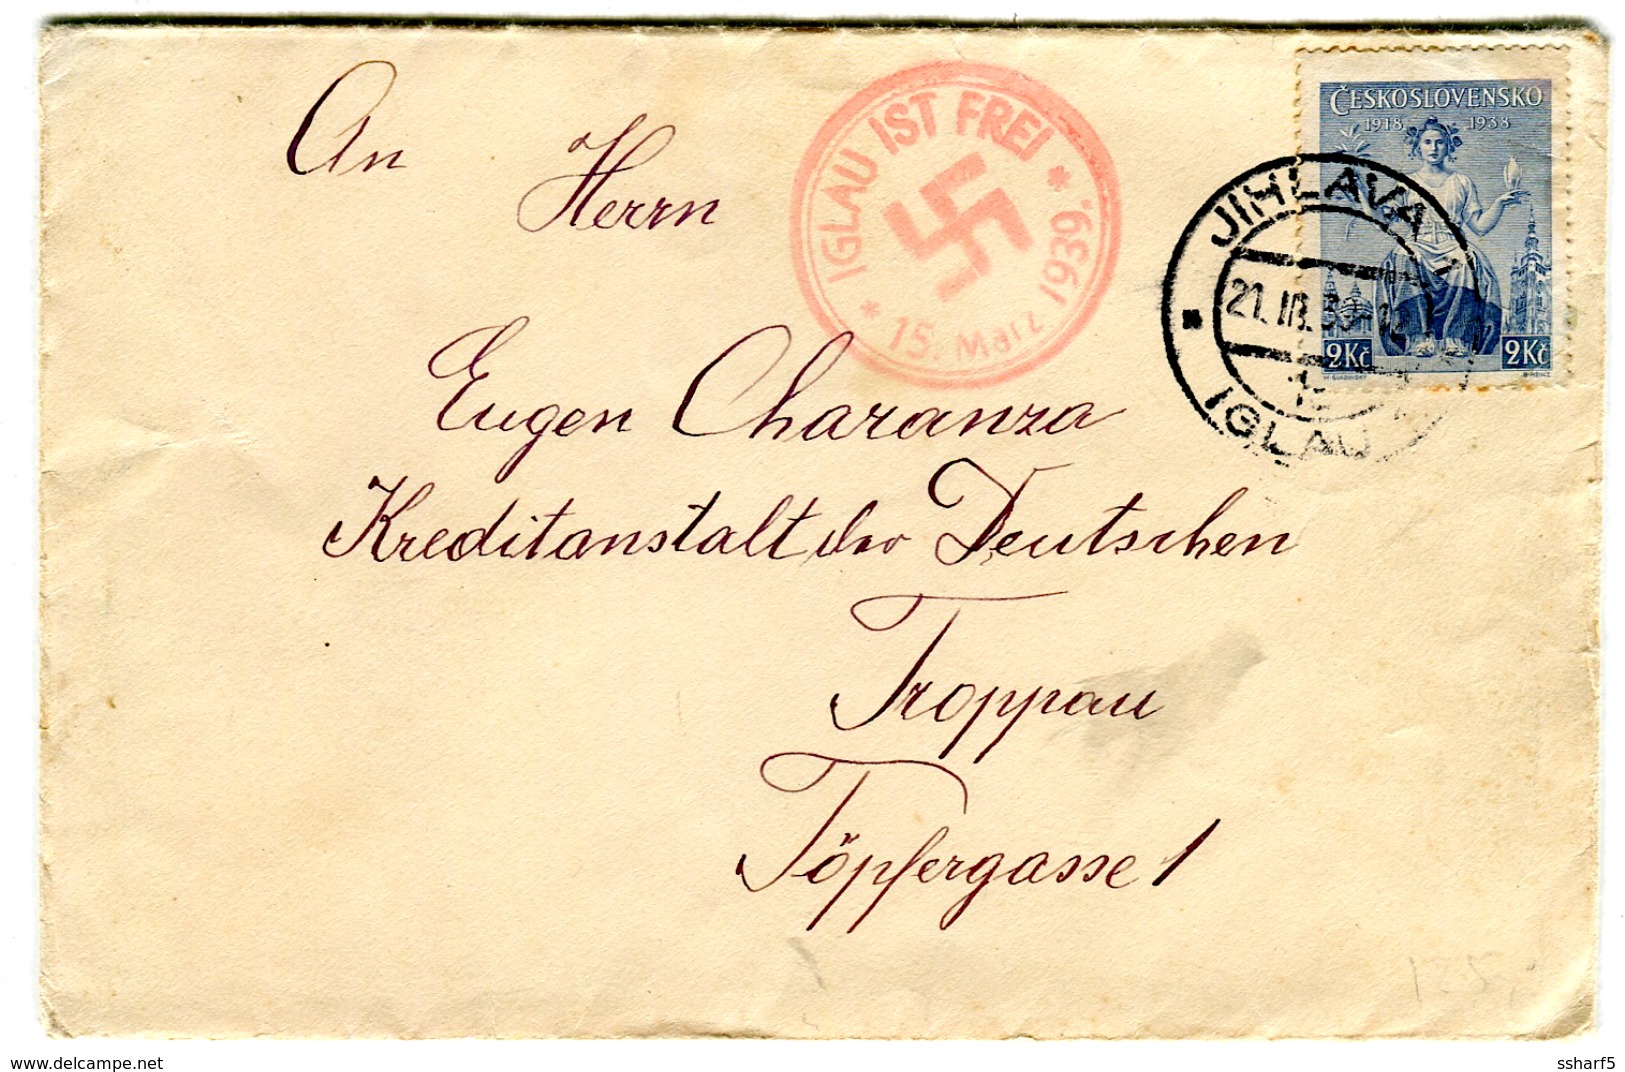 An
Herrn
Eugen Charanza
Kreditanstalt der Deutschen
Troppau
Töpfergasse 1
* IGLAU IST FREI *
15. März 1939.
ČESKOSLOVENSKO
1918 1938
2Kč 2Kč
JIHLAVA 1
21. III. 39-12
IGLAU
delcampe.net
ssharf5